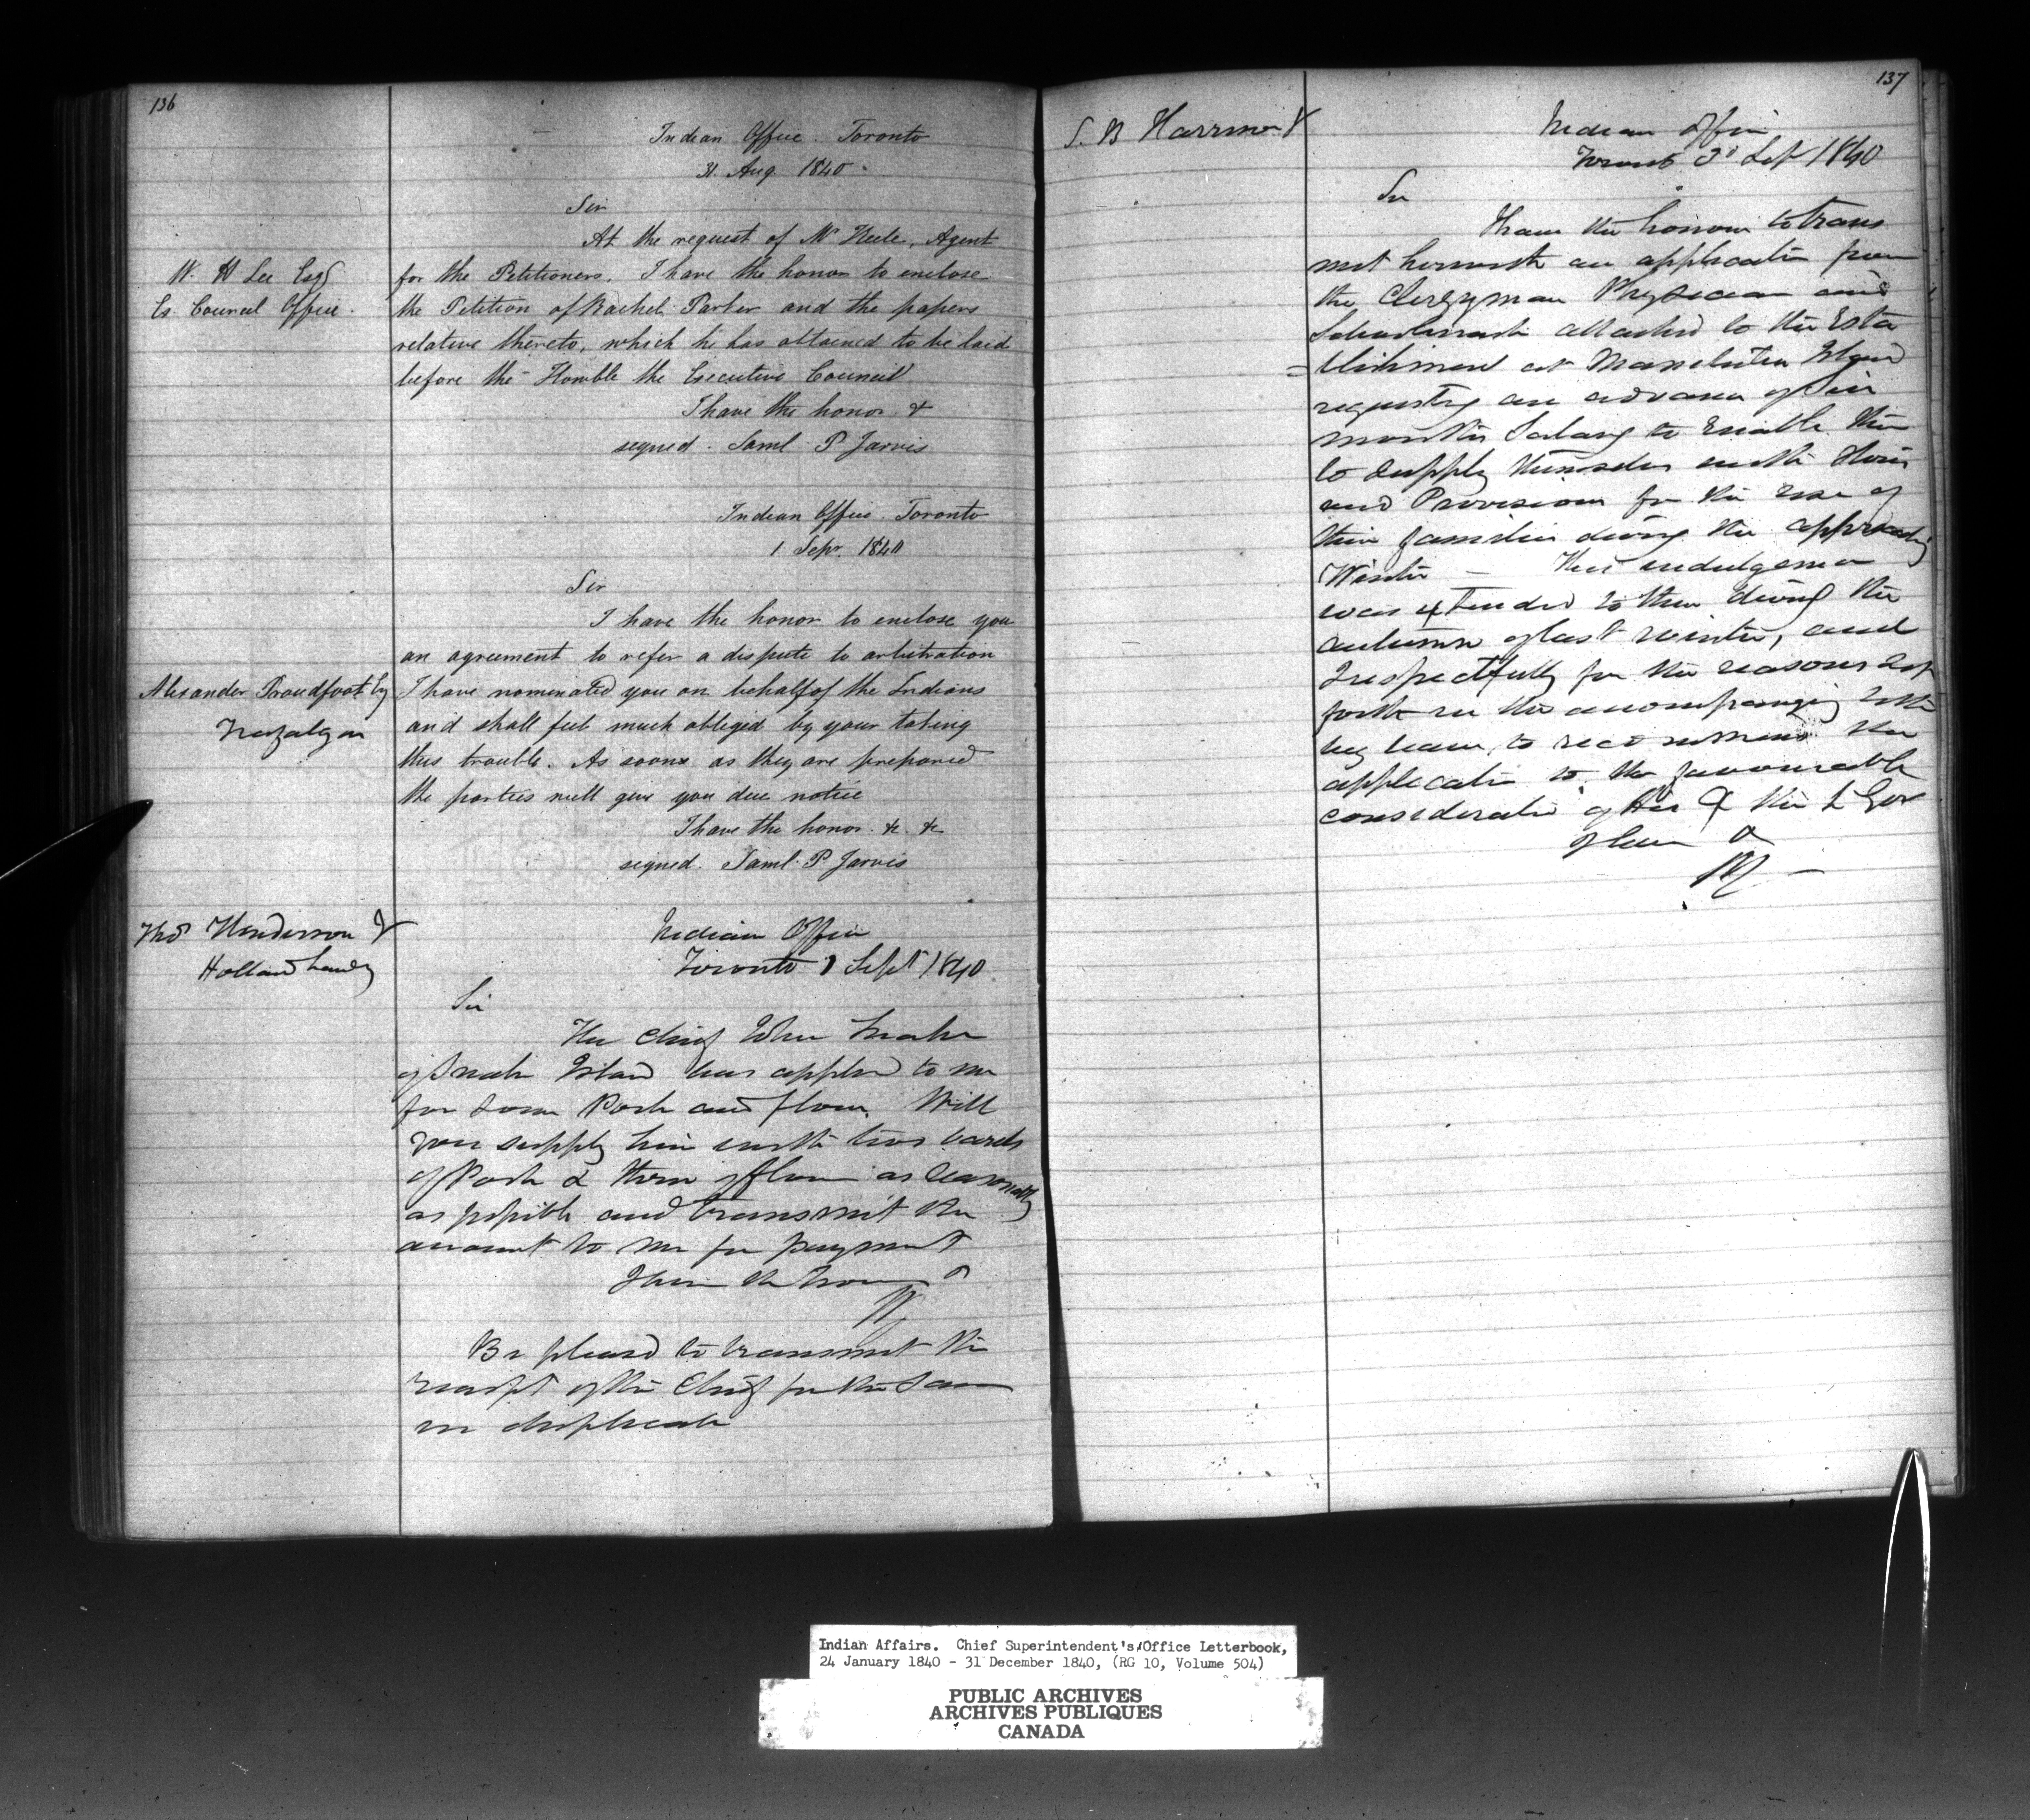 136
Indian Office Toronto
31 Aug 1840
Sir
At the request of Mr Agent
W. H Lee Esq
Ex Council Office
for the Petitioners. I have the honor to enclose
the Petition of Rachel Parker and the papers
relative thereto, which he has attained to be laid
before the Honble the Executive Council
I have the honor &
signed Saml P Jarvis
Indian Office Toronto
1 Sepr 1840
Sir
I have the honor to enclose you
an agreement to refer a dispute to arbitration
Alexander Proudfoot Esq
Trafalgar
I have nominated you on behalf of the Indians
and shall feel much obliged by your taking
this trouble. As soon as they are prepared
the parties will give you due notice
I have the honor &c &c
signed. Saml P. Jarvis
Thos Henderson
Holland Landg
Indian Office
Toronto 1 Sept 1840
Sir
The Chief John Snake
of Snake Island has applied to me
for some Pork and flour. Will
you supply him with two barels
of Pork & three of flour as reasonably
as possible and transmit the
account to me for payment
I have the honor &
Be pleased to transmit the
receipt of the Chief for the same
in duplicate
137
S. B Harrison
Indian Office
Toronto 3d Sept 1840
Sir
I have the honour to trans
mit herewith an application from
the Clergyman Physician and
Schoolmaster attached to the Esta
=blishment at Manitoulin Island
requesting an advance of Six
months Salary to enable them
to supply themselves with Flour
and Provisions for the use of
their families during the approaching
Winter — This indulgence
was extended to them during the
autumn of last winter, and
I respectfully for the reasons set
forth in the accompanying letter
beg leave to recommend the
application to the favourable
consideration of His Ex the Lt Gov
I have &
Indian Affairs. Chief Superintendent's Office Letterbook,
24 January 1840 - 31 December 1840, (RG 10, Volume 504)
PUBLIC ARCHIVES
ARCHIVES PUBLIQUES
CANADA